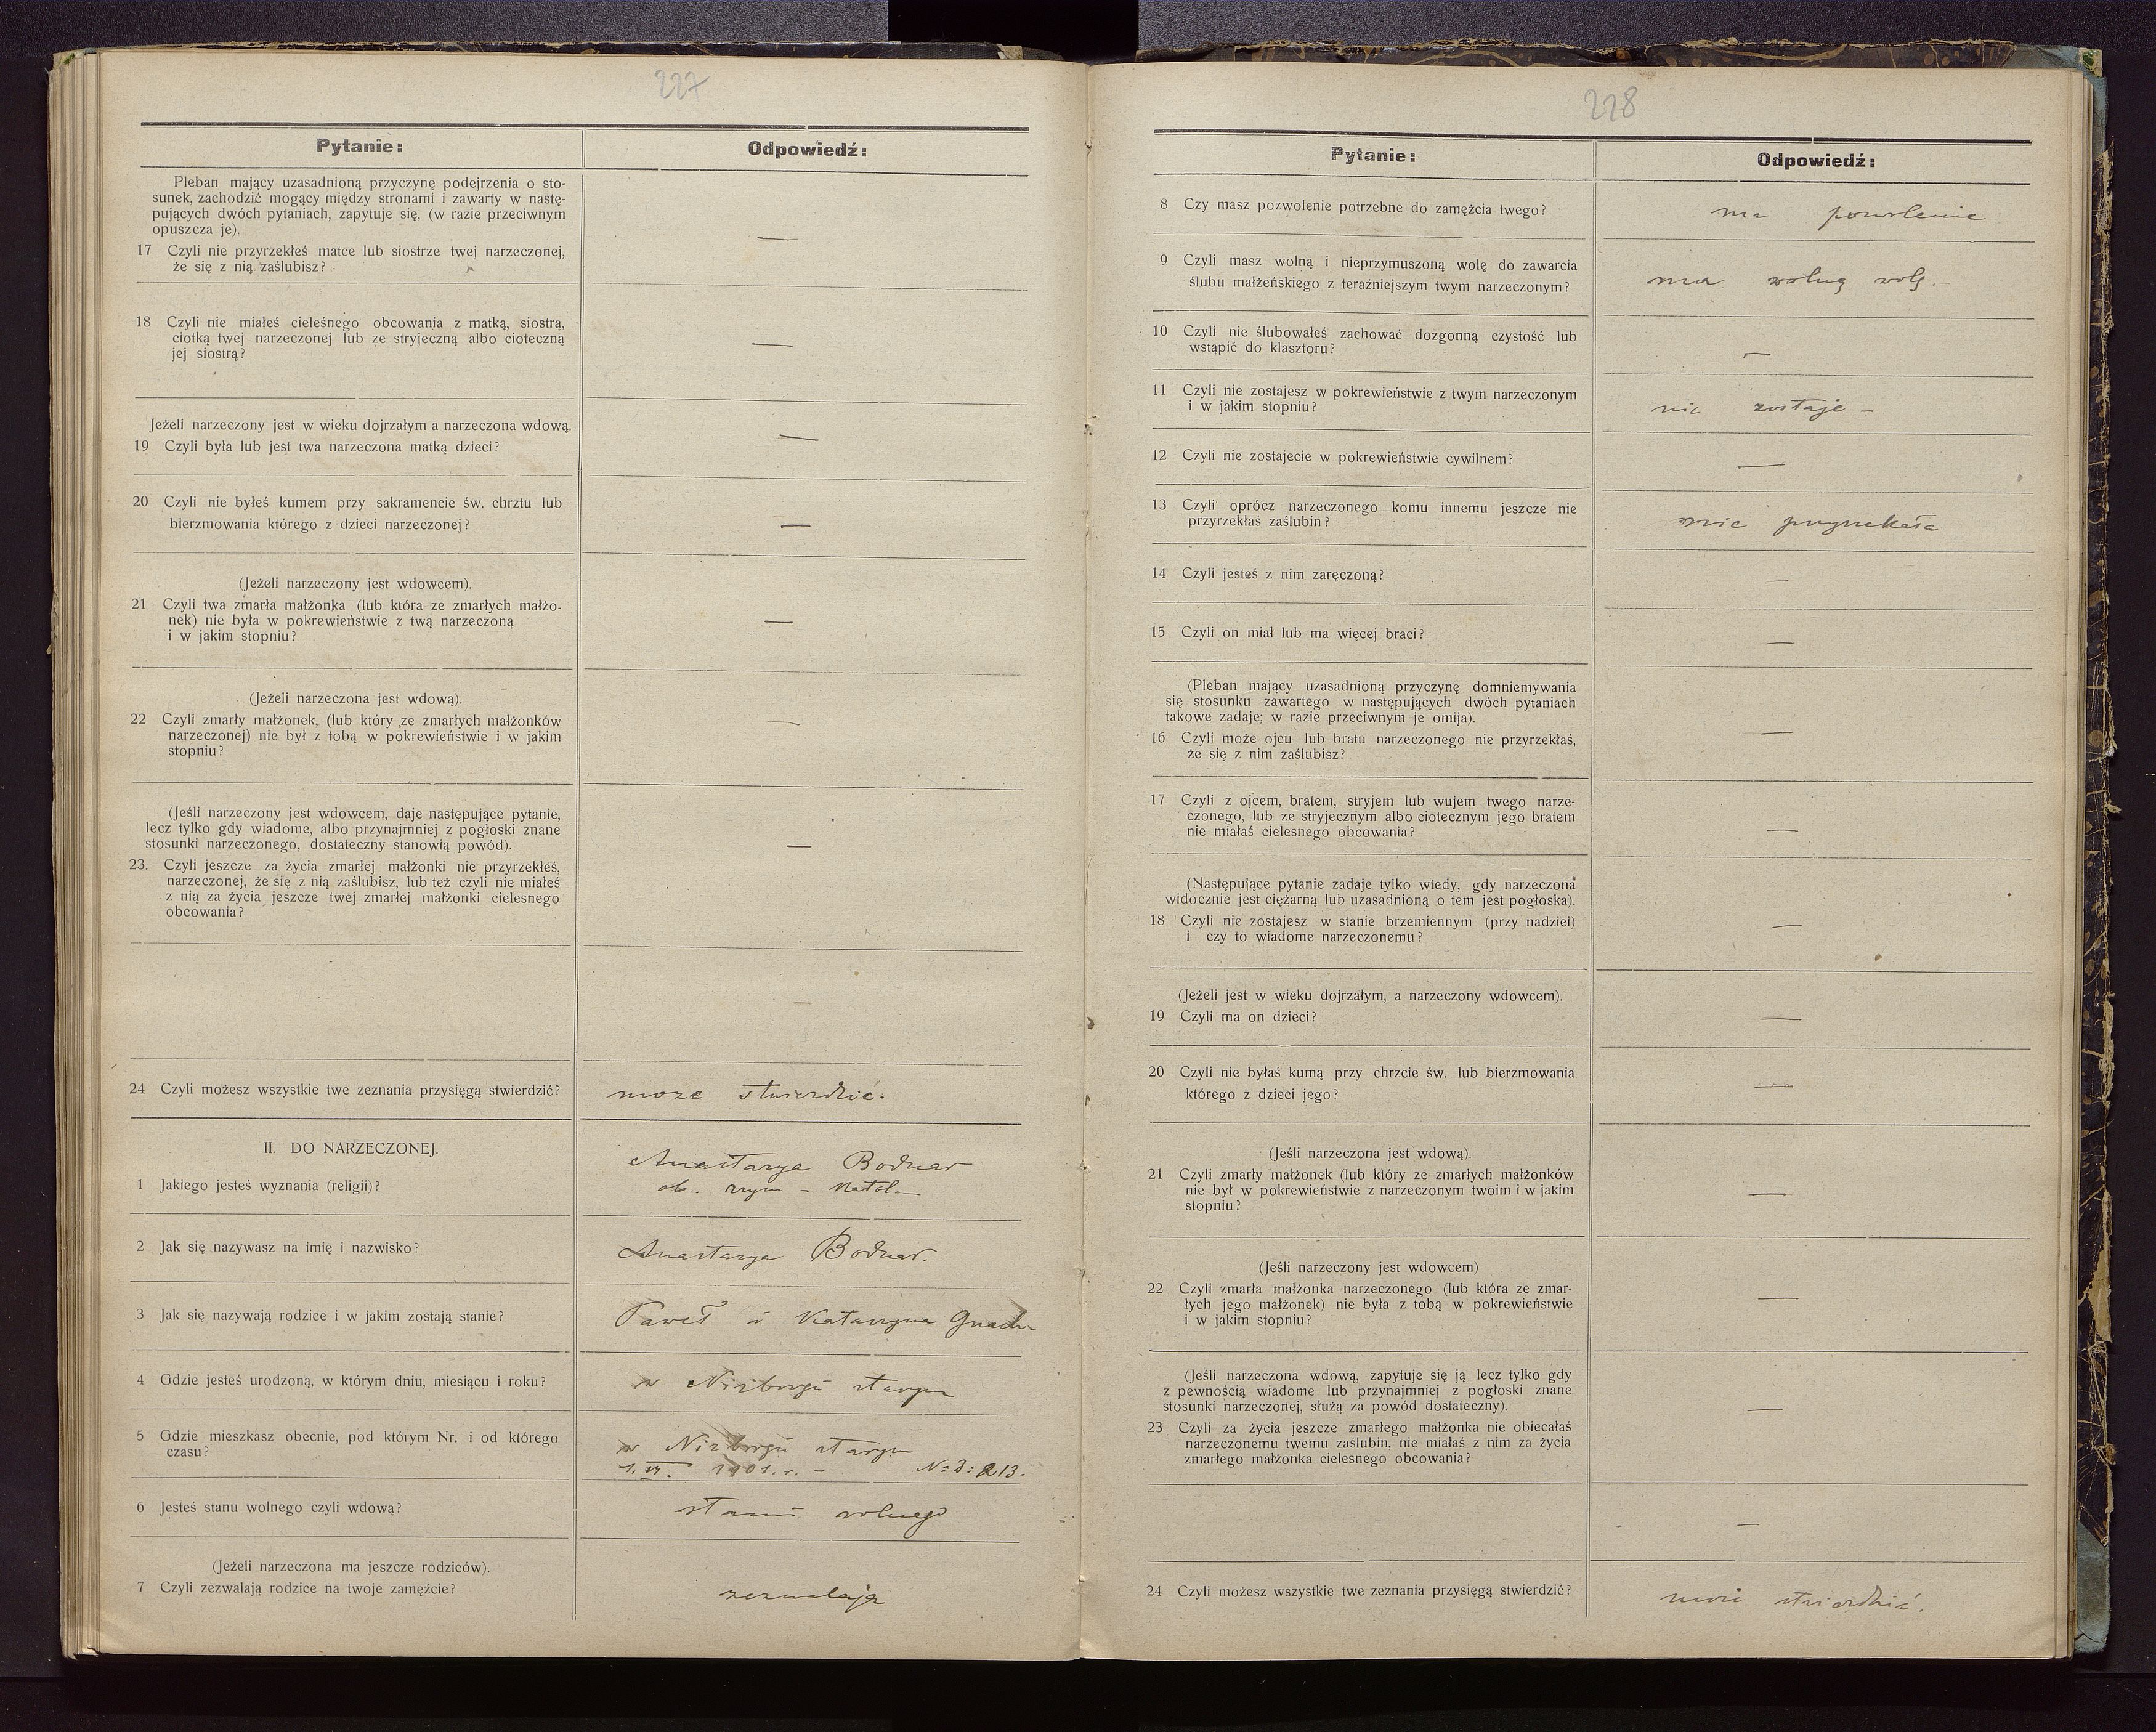 227
Pytanie:
Odpowiedź:
Pleban mający uzasadnioną przyczynę podejrzenia o sto-
sunek, zachodzić mogący między stronami i zawarty w nastę-
pujących dwóch pytaniach, zapytuje się, (w razie przeciwnym
opuszcza je).
17 Czyli nie przyrzekłeś matce lub siostrze twej narzeczonej,
że się z nią zaślubisz?
—
18 Czyli nie miałeś cieleśnego obcowania z matką, siostrą,
ciotką twej narzeczonej lub ze stryjeczną albo cioteczną
jej siostrą?
—
Jeżeli narzeczony jest w wieku dojrzałym a narzeczona wdową.
19 Czyli była lub jest twa narzeczona matką dzieci?
—
20 Czyli nie byłeś kumem przy sakramencie św. chrztu lub
bierzmowania którego z dzieci narzeczonej?
—
(Jeżeli narzeczony jest wdowcem).
21 Czyli twa zmarła małżonka (lub która ze zmarłych małżo-
nek) nie była w pokrewieństwie z twą narzeczoną
i w jakim stopniu?
—
(Jeżeli narzeczona jest wdową).
22 Czyli zmarły małżonek, (lub który ze zmarłych małżonków
narzeczonej) nie był z tobą w pokrewieństwie i w jakim
stopniu?
—
(Jeśli narzeczony jest wdowcem, daje następujące pytanie,
lecz tylko gdy wiadome, albo przynajmniej z pogłoski znane
stosunki narzeczonego, dostateczny stanowią powód).
23. Czyli jeszcze za życia zmarłej małżonki nie przyrzekłeś,
narzeczonej, że się z nią zaślubisz, lub też czyli nie miałeś
z nią za życia jeszcze twej zmarłej małżonki cielesnego
obcowania?
—
—
24 Czyli możesz wszystkie twe zeznania przysięgą stwierdzić?
może stwierdzić.
II. DO NARZECZONEJ.
1 Jakiego jesteś wyznania (religii)?
Anastazya Bodnar
ob. rzym - katol. —
2 Jak się nazywasz na imię i nazwisko?
Anastazya Bodnar.
3 Jak się nazywają rodzice i w jakim zostają stanie?
Paweł i Katarzyna
4 Gdzie jesteś urodzoną, w którym dniu, miesiącu i roku?
w Niżborgu starym
5 Gdzie mieszkasz obecnie, pod którym Nr. i od którego
czasu?
w Niżborgu starym
1901. r. - 213.
6 Jesteś stanu wolnego czyli wdową?
stanu wolnego
(Jeżeli narzeczona ma jeszcze rodziców).
7 Czyli zezwalają rodzice na twoje zamęźcie?
zezwalają
228
Pytanie:
Odpowiedź:
8 Czy masz pozwolenie potrzebne do zamężcia twego?
ma pozwolenie
9 Czyli masz wolną i nieprzymuszoną wolę do zawarcia
ślubu małżeńskiego z teraźniejszym twym narzeczonym?
ma wolną wolę. -
10 Czyli nie ślubowałeś zachować dozgonną czystość lub
wstąpić do klasztoru?
—
11 Czyli nie zostajesz w pokrewieństwie z twym narzeczonym
i w jakim stopniu?
nie zostaje -
12 Czyli nie zostajecie w pokrewieństwie cywilnem?
—
13 Czyli oprócz narzeczonego komu innemu jeszcze nie
przyrzekłaś zaślubin?
nie przyrzekała
14 Czyli jesteś z nim zaręczoną?
—
15 Czyli on miał lub ma więcej braci?
—
(Pleban mający uzasadnioną przyczynę domniemywania
się stosunku zawartego w następujących dwóch pytaniach
takowe zadaje; w razie przeciwnym je omija).
16 Czyli może ojcu lub bratu narzeczonego nie przyrzekłaś,
że się z nim zaślubisz?
—
17 Czyli z ojcem, bratem, stryjem lub wujem twego narze-
czonego, lub ze stryjecznym albo ciotecznym jego bratem
nie miałaś cielesnego obcowania?
—
(Następujące pytanie zadaje tylko wtedy, gdy narzeczona
widocznie jest ciężarną lub uzasadnioną o tem jest pogłoska).
18 Czyli nie zostajesz w stanie brzemiennym (przy nadziei)
i czy to wiadome narzeczonemu?
—
(Jeżeli jest w wieku dojrzałym, a narzeczony wdowcem).
19 Czyli ma on dzieci?
—
20 Czyli nie byłaś kumą przy chrzcie św. lub bierzmowania
którego z dzieci jego?
—
(Jeśli narzeczona jest wdową).
21 Czyli zmarły małżonek (lub który ze zmarłych małżonków
nie był w pokrewieństwie z narzeczonym twoim i w jakim
stopniu?
—
(Jeśli narzeczony jest wdowcem)
22 Czyli zmarła małżonka narzeczonego (lub która ze zmar-
łych jego małżonek) nie była z tobą w pokrewieństwie
i w jakim stopniu?
—
(Jeśli narzeczona wdową, zapytuje się ją lecz tylko gdy
z pewnością wiadome lub przynajmniej z pogłoski znane
stosunki narzeczonej, służą za powód dostateczny).
23 Czyli za życia jeszcze zmarłego małżonka nie obiecałaś
narzeczonemu twemu zaślubin, nie miałaś z nim za życia
zmarłego małżonka cielesnego obcowania?
—
—
24 Czyli możesz wszystkie twe zeznania przysięgą stwierdzić?
może stwierdzić.